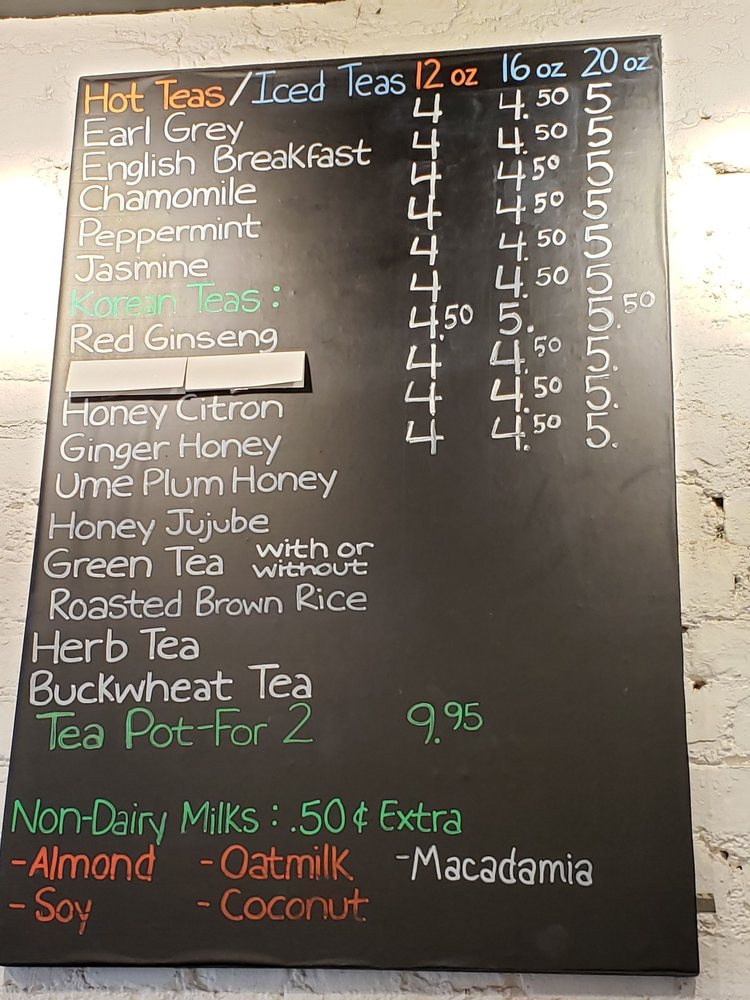 Hot Teas/Iced Teas 12 oz 16 oz 20 oz
Earl Grey 4 4.50 5
English Breakfast 4 4.50 5
Chamomile 4 4.50 5
Peppermint 4 4.50 5
Jasmine 4 4.50 5
Korean Teas: 4 4.50 5
Red Ginseng 4.50 5. 5.50
4 4.50 5.
Honey Citron 4 4.50 5.
Ginger Honey 4 4.50 5.
Ume Plum Honey
Honey Jujube
Green Tea with or without
Roasted Brown Rice
Herb Tea
Buckwheat Tea
Tea Pot-For 2 9.95
Non-Dairy Milks: .50¢ Extra
-Almond -Oatmilk -Macadamia
-Soy -Coconut